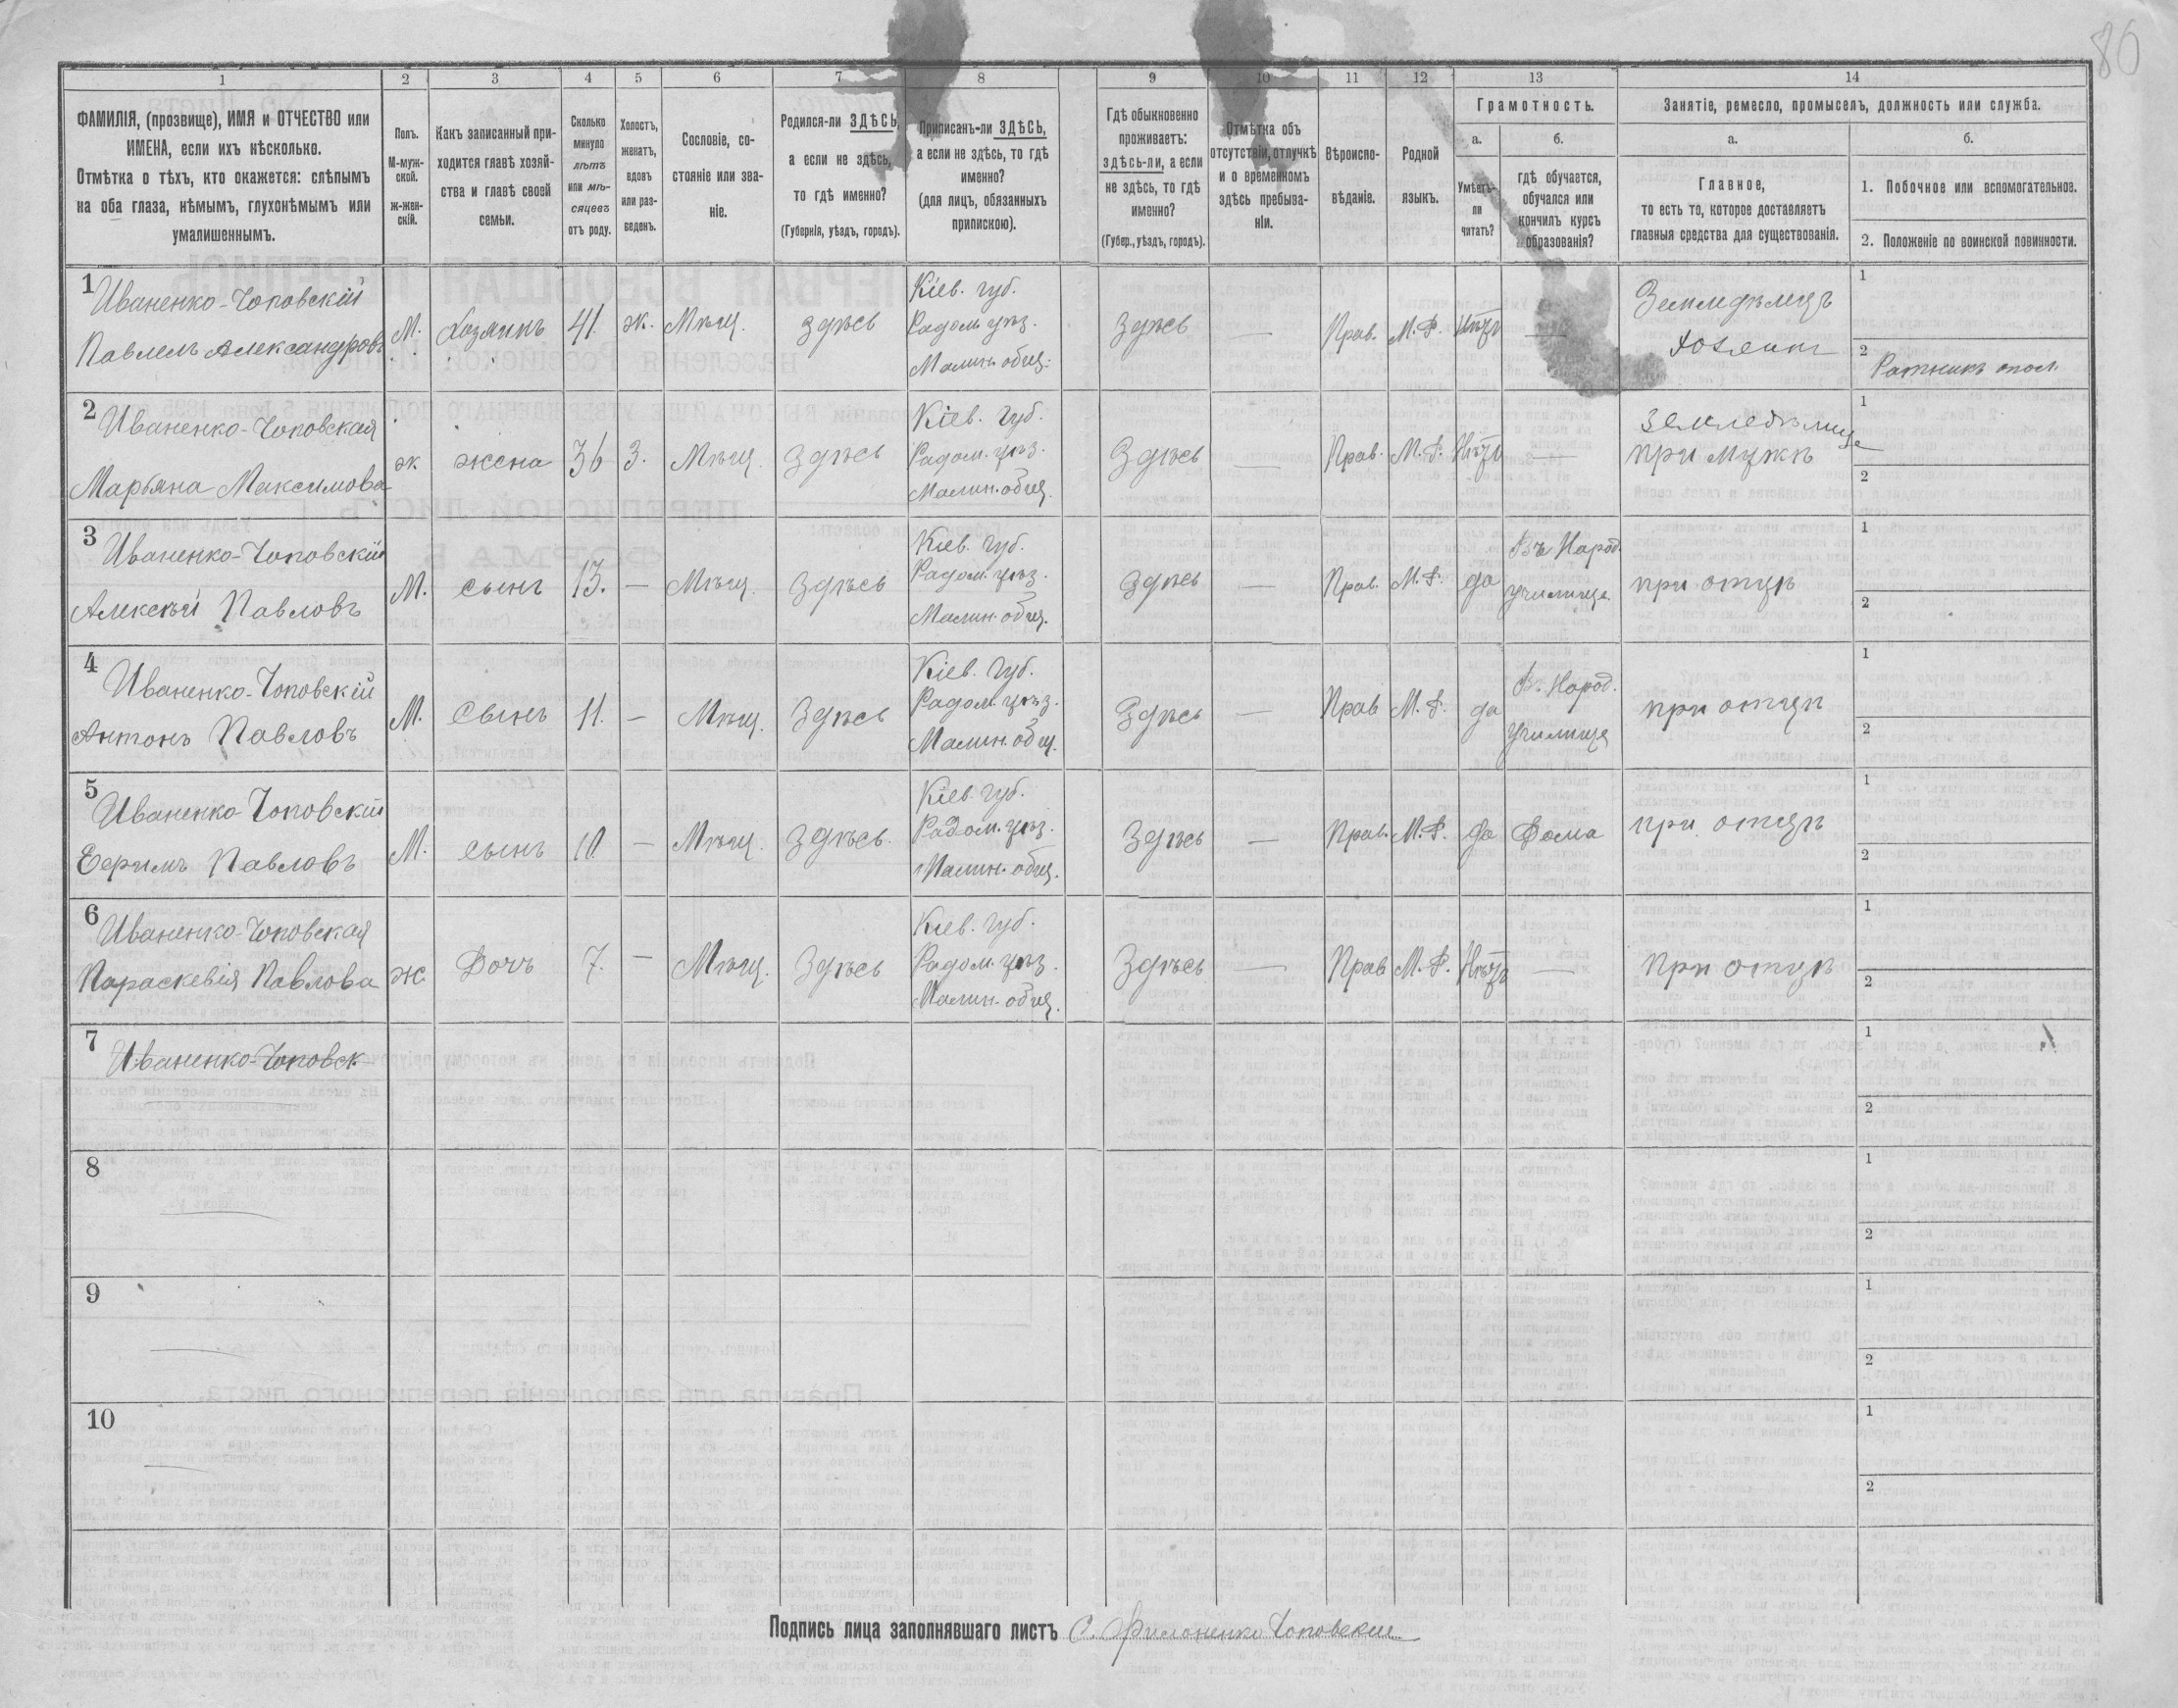 86
1 2 3 4 5 6 7 8 9 10 11 12 13 14
ФАМИЛІЯ, (прозвище), ИМЯ и ОТЧЕСТВО или
ИМЕНА, если ихъ нѣсколько.
Отмѣтка о тѣхъ, кто окажется: слѣпымъ
на оба глаза, нѣмымъ, глухонѣмымъ или
умалишеннымъ.
Полъ.
М-муж-
ской.
ж-жен-
скій.
Какъ записанный при-
ходится главѣ хозяй-
ства и главѣ своей
семьи.
Сколько
минуло
лѣтъ
или мѣ-
сяцевъ
отъ роду.
Холостъ,
женатъ,
вдовъ
или раз-
веденъ.
Сословіе, со-
стояніе или зва-
ніе.
Родился-ли ЗДѢСЬ,
а если не здѣсь,
то гдѣ именно?
(Губернія, уѣздъ, городъ).
Приписанъ-ли ЗДѢСЬ,
а если не здѣсь, то гдѣ
именно?
(для лицъ, обязанныхъ
припискою).
Гдѣ обыкновенно
проживаетъ:
здѣсь-ли, а если
не здѣсь, то гдѣ
именно?
(Губер., уѣздъ, городъ).
Отмѣтка объ
отсутствіи, отлучкѣ
и о временномъ
здѣсь пребыва-
ніи.
Вѣроиспо-
вѣданіе.
Родной
языкъ.
Грамотность.
а.
Умѣетъ-
ли
читать?
б.
гдѣ обучается,
обучался или
кончилъ курсъ
образованія?
Занятіе, ремесло, промыселъ, должность или служба.
а.
Главное,
то есть то, которое доставляетъ
главныя средства для существованія.
б.
1. Побочное или вспомогательное.
2. Положеніе по воинской повинности.
1
Иваненко-Чоповскій
Павелъ Александровъ
М.
Хозяинъ
41
ж.
Мѣщ.
Здѣсь
Кіев. губ.
Радом. уѣз.
Малин. общ.
Здѣсь
—
Прав.
М. Р.
Нѣтъ
—
Земледѣлецъ
Хозяинъ
1
2
Ратникъ опол.
2
Иваненко-Чоповская
Марьяна Максимова
ж
жена
36
З.
Мѣщ.
Здѣсь
Кіев. губ.
Радом. уѣз.
Малин. общ.
Здѣсь
—
Прав.
М. Р.
Нѣтъ
—
земледѣлице
при мужѣ
1
2
3
Иваненко-Чоповскій
Алексѣй Павловъ
М.
сынъ
13.
—
Мѣщ.
Здѣсь
Кіев. губ.
Радом. уѣз.
Малин. общ.
Здѣсь
—
Прав.
М. Р.
да
Въ Народ.
училище
при отцѣ
1
2
4
Иваненко-Чоповскій
Антонъ Павловъ
М.
Сынъ
11.
—
Мѣщ.
Здѣсь
Кіев. губ.
Радом. уѣз.
Малин. общ.
Здѣсь
—
Прав
М. Р.
да
В. Народ.
училище
при отцѣ
1
2
5
Иваненко-Чоповскій
Ефримъ Павловъ
М.
сынъ
10
—
Мѣщ.
Здѣсь.
Кіев. губ.
Радом. уѣз.
Малин. общ.
Здѣсь
—
Прав.
М. Р.
да
Дома
при отцѣ
1
2
6
Иваненко-Чоповская
Параскевія Павлова
ж
Дочь
7.
—
Мѣщ.
Здѣсь
Кіев. губ.
Радом. уѣз.
Малин. общ.
Здѣсь
—
Прав
М. Р.
Нѣтъ
—
при отцѣ
1
2
7
Иваненко-Чоповск
1
2
8
1
2
9
1
2
10
1
2
Подпись лица заполнявшаго листъ С. Филоненко Чоповскій